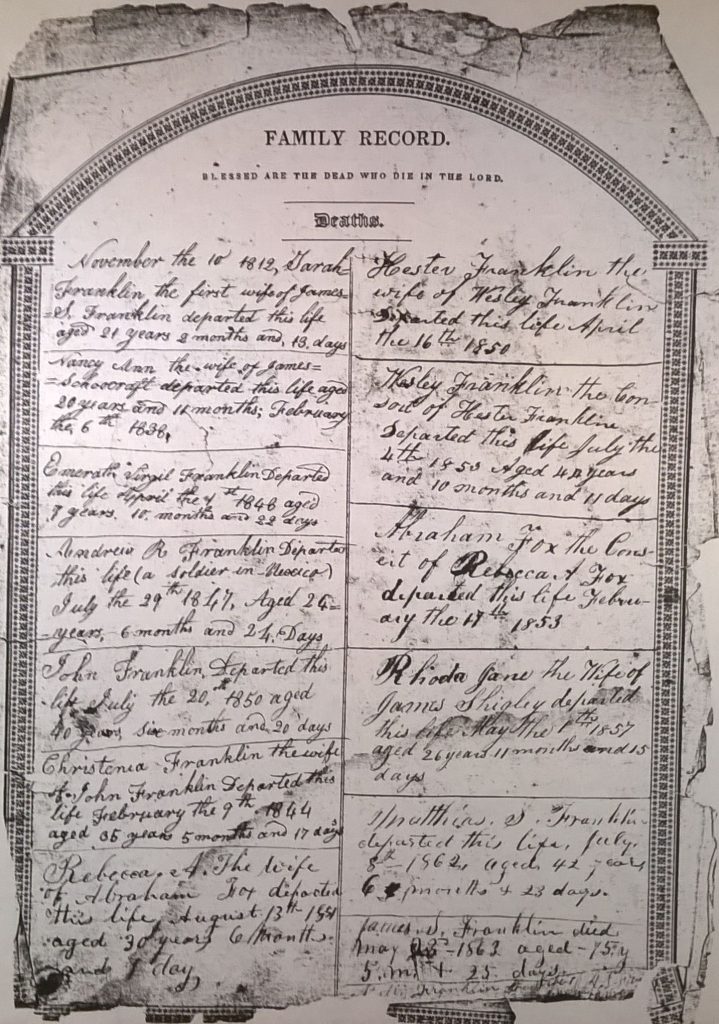 FAMILY RECORD.
BLESSED ARE THE DEAD WHO DIE IN THE LORD.
Deaths.
November the 10 1812, Sarah
Franklin the first wife of James=
=S. Franklin departed this life
aged 21 years 2 months and 13 days
Nancy Ann the wife of James=
=Schoocraft departed this life aged
20 years and 11 months; February
the 6th 1838,
Emerath Virgil Franklin Departed
this life April the 1848 aged
7 years. 10 months and 22 days
Andrew R Franklin Departed
this life (a soldier in Mexico)
July the 29th 1847, Aged 26=
=years, 6 months and 24 Days
John Franklin, Departed this
life July the 20th 1850 aged
40 years six months and 20 days
Christenia Franklin the wife
of John Franklin Departed this
life February the 9th 1844
aged 35 years 5 months and 17 days
Rebecca. A. The wife
of Abraham Fox departed
this life, August 13th 1851
aged 30 years 6 Month
and 1 day,
Hester Franklin the
wife of Wesley Franklin
Departed this life April
the 16th 1850
Wesley Franklin the Con-
sort of Hester Franklin
Departed this life July the
4th 1853 Aged years
and 10 months and 11 days
Abraham Fox the Cons-
ort of Rebecca A Fox
departed this life Febru-
ary the 17th 1853
Rhoda Jane the Wife of
James Shigley departed
this life May the 1857
aged 26 years 11 months and 15
days
S. Franklin
departed this life, July,
8th 1862, aged, 42 years
6 months + 23 days.
James. S. Franklin died
may 1863 aged - 75. y
5. m. + 25. days.
Franklin